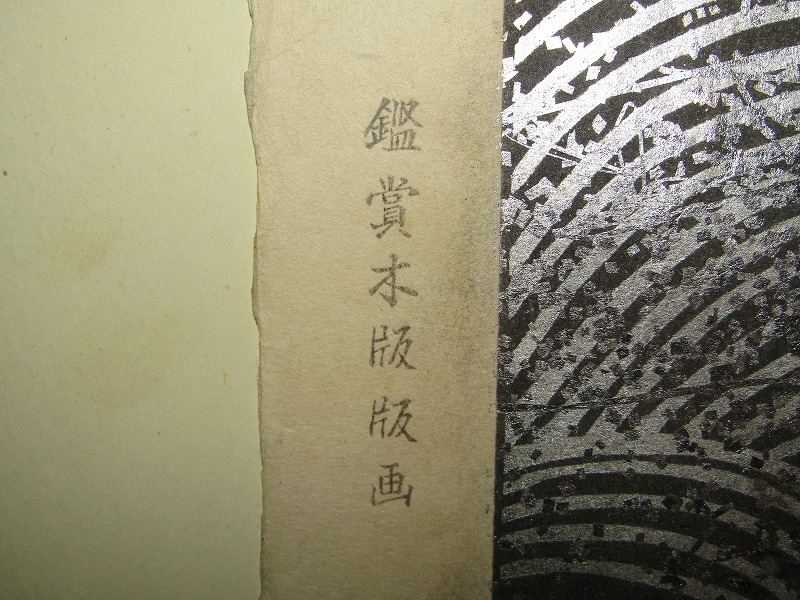 鑑賞木版版画